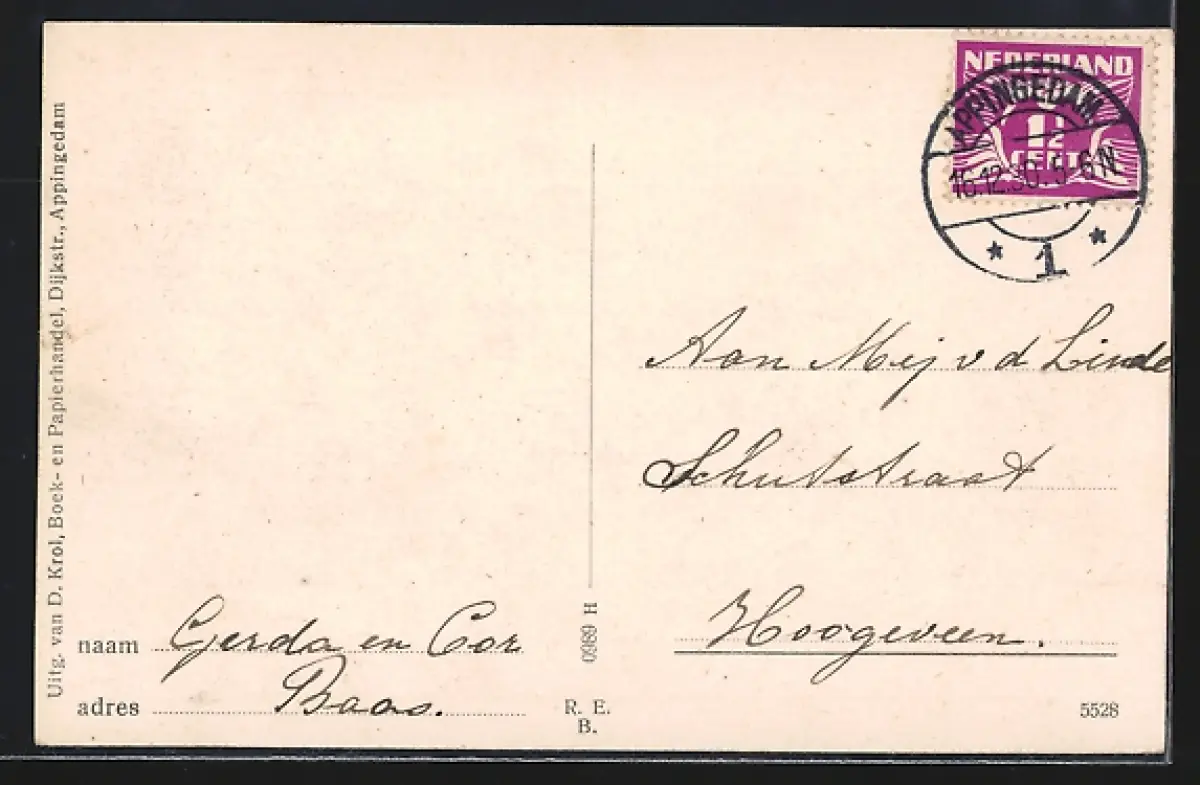 Uitg. van D. Krol, Boek- en Papierhandel, Dijkstr., Appingedam
NEDERLAND
1½
CENT
APPINGEDAM
16.12.30. 5-6 N
* 1 *
Aan Mej v d Linde
Schutstraat
Hoogeveen.
naam Gerda en Cor
Baas.
adres
0989 H
R. E.
B.
5528